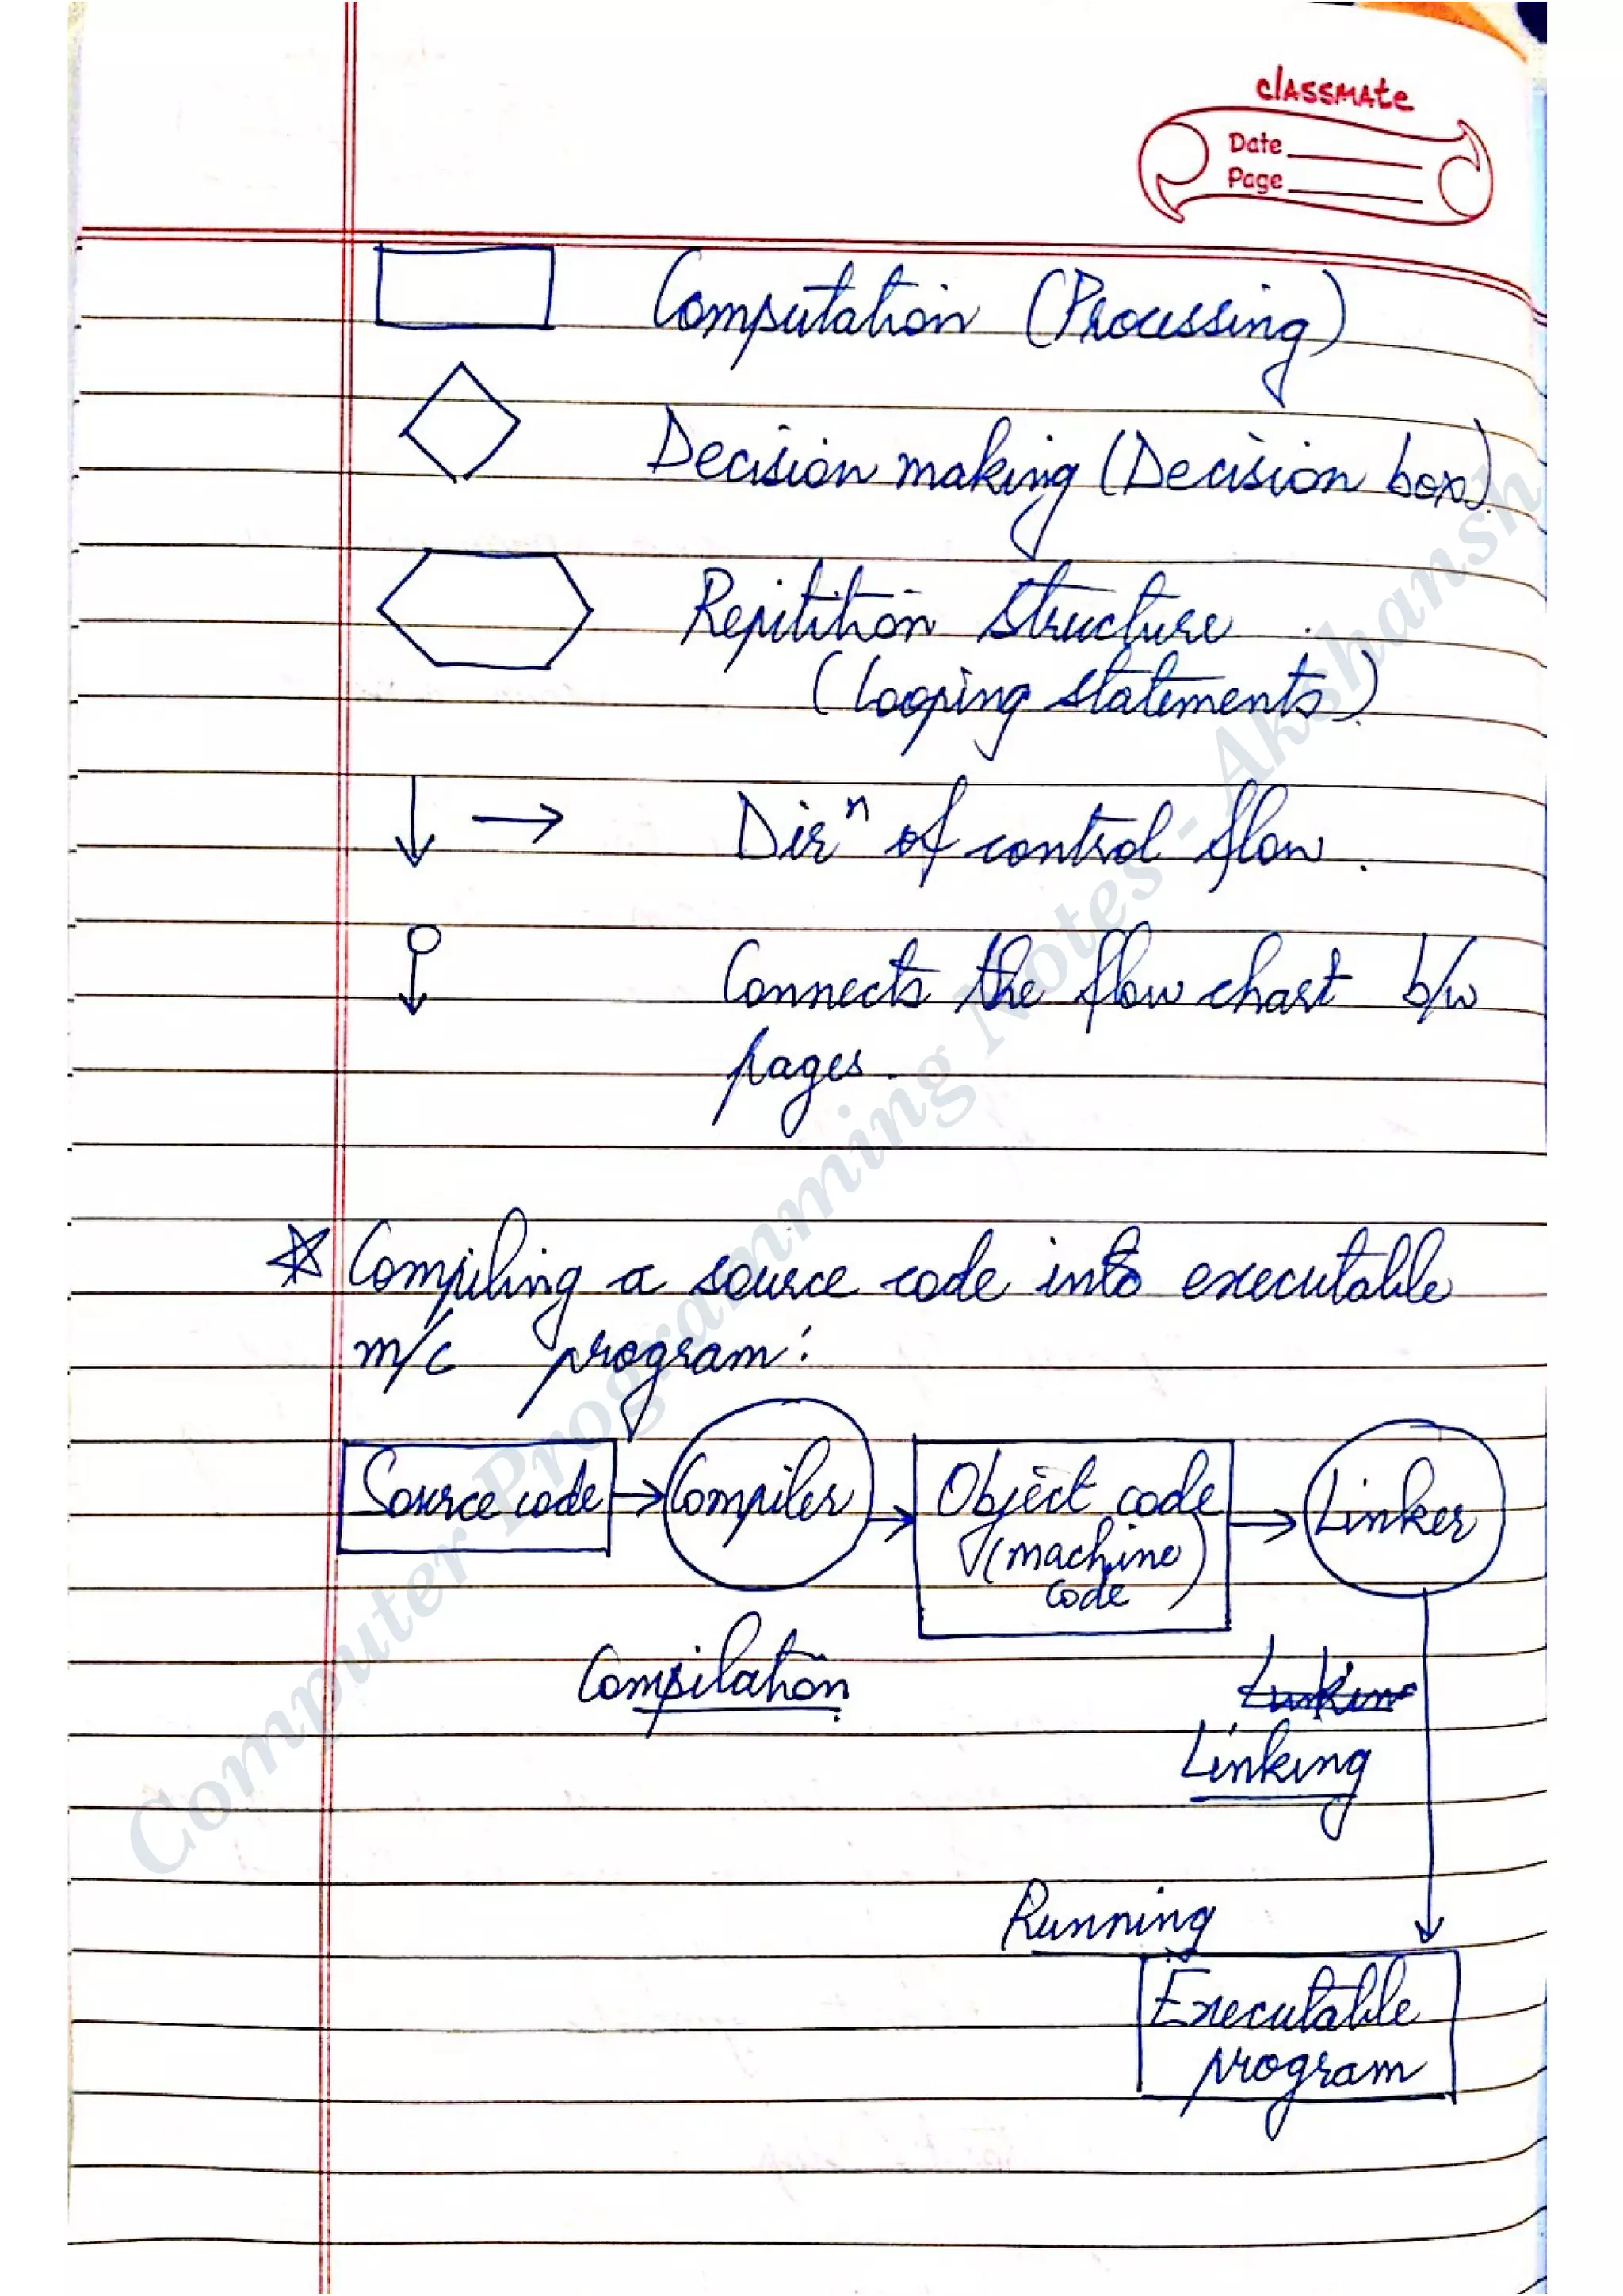 classmate
Date
Page
Computation (Processing)
Decision making (Decision box)
Repitition structure
(looping statements)
Dirⁿ of control flow.
Connects the flow chart b/w
pages.
Compiling a source code into executable
m/c program:
Source code
Compiler
Object code
(machine
code)
Linker
Compilation
Linking
Running
Executable
program
Computer Programming Notes - Akshansh